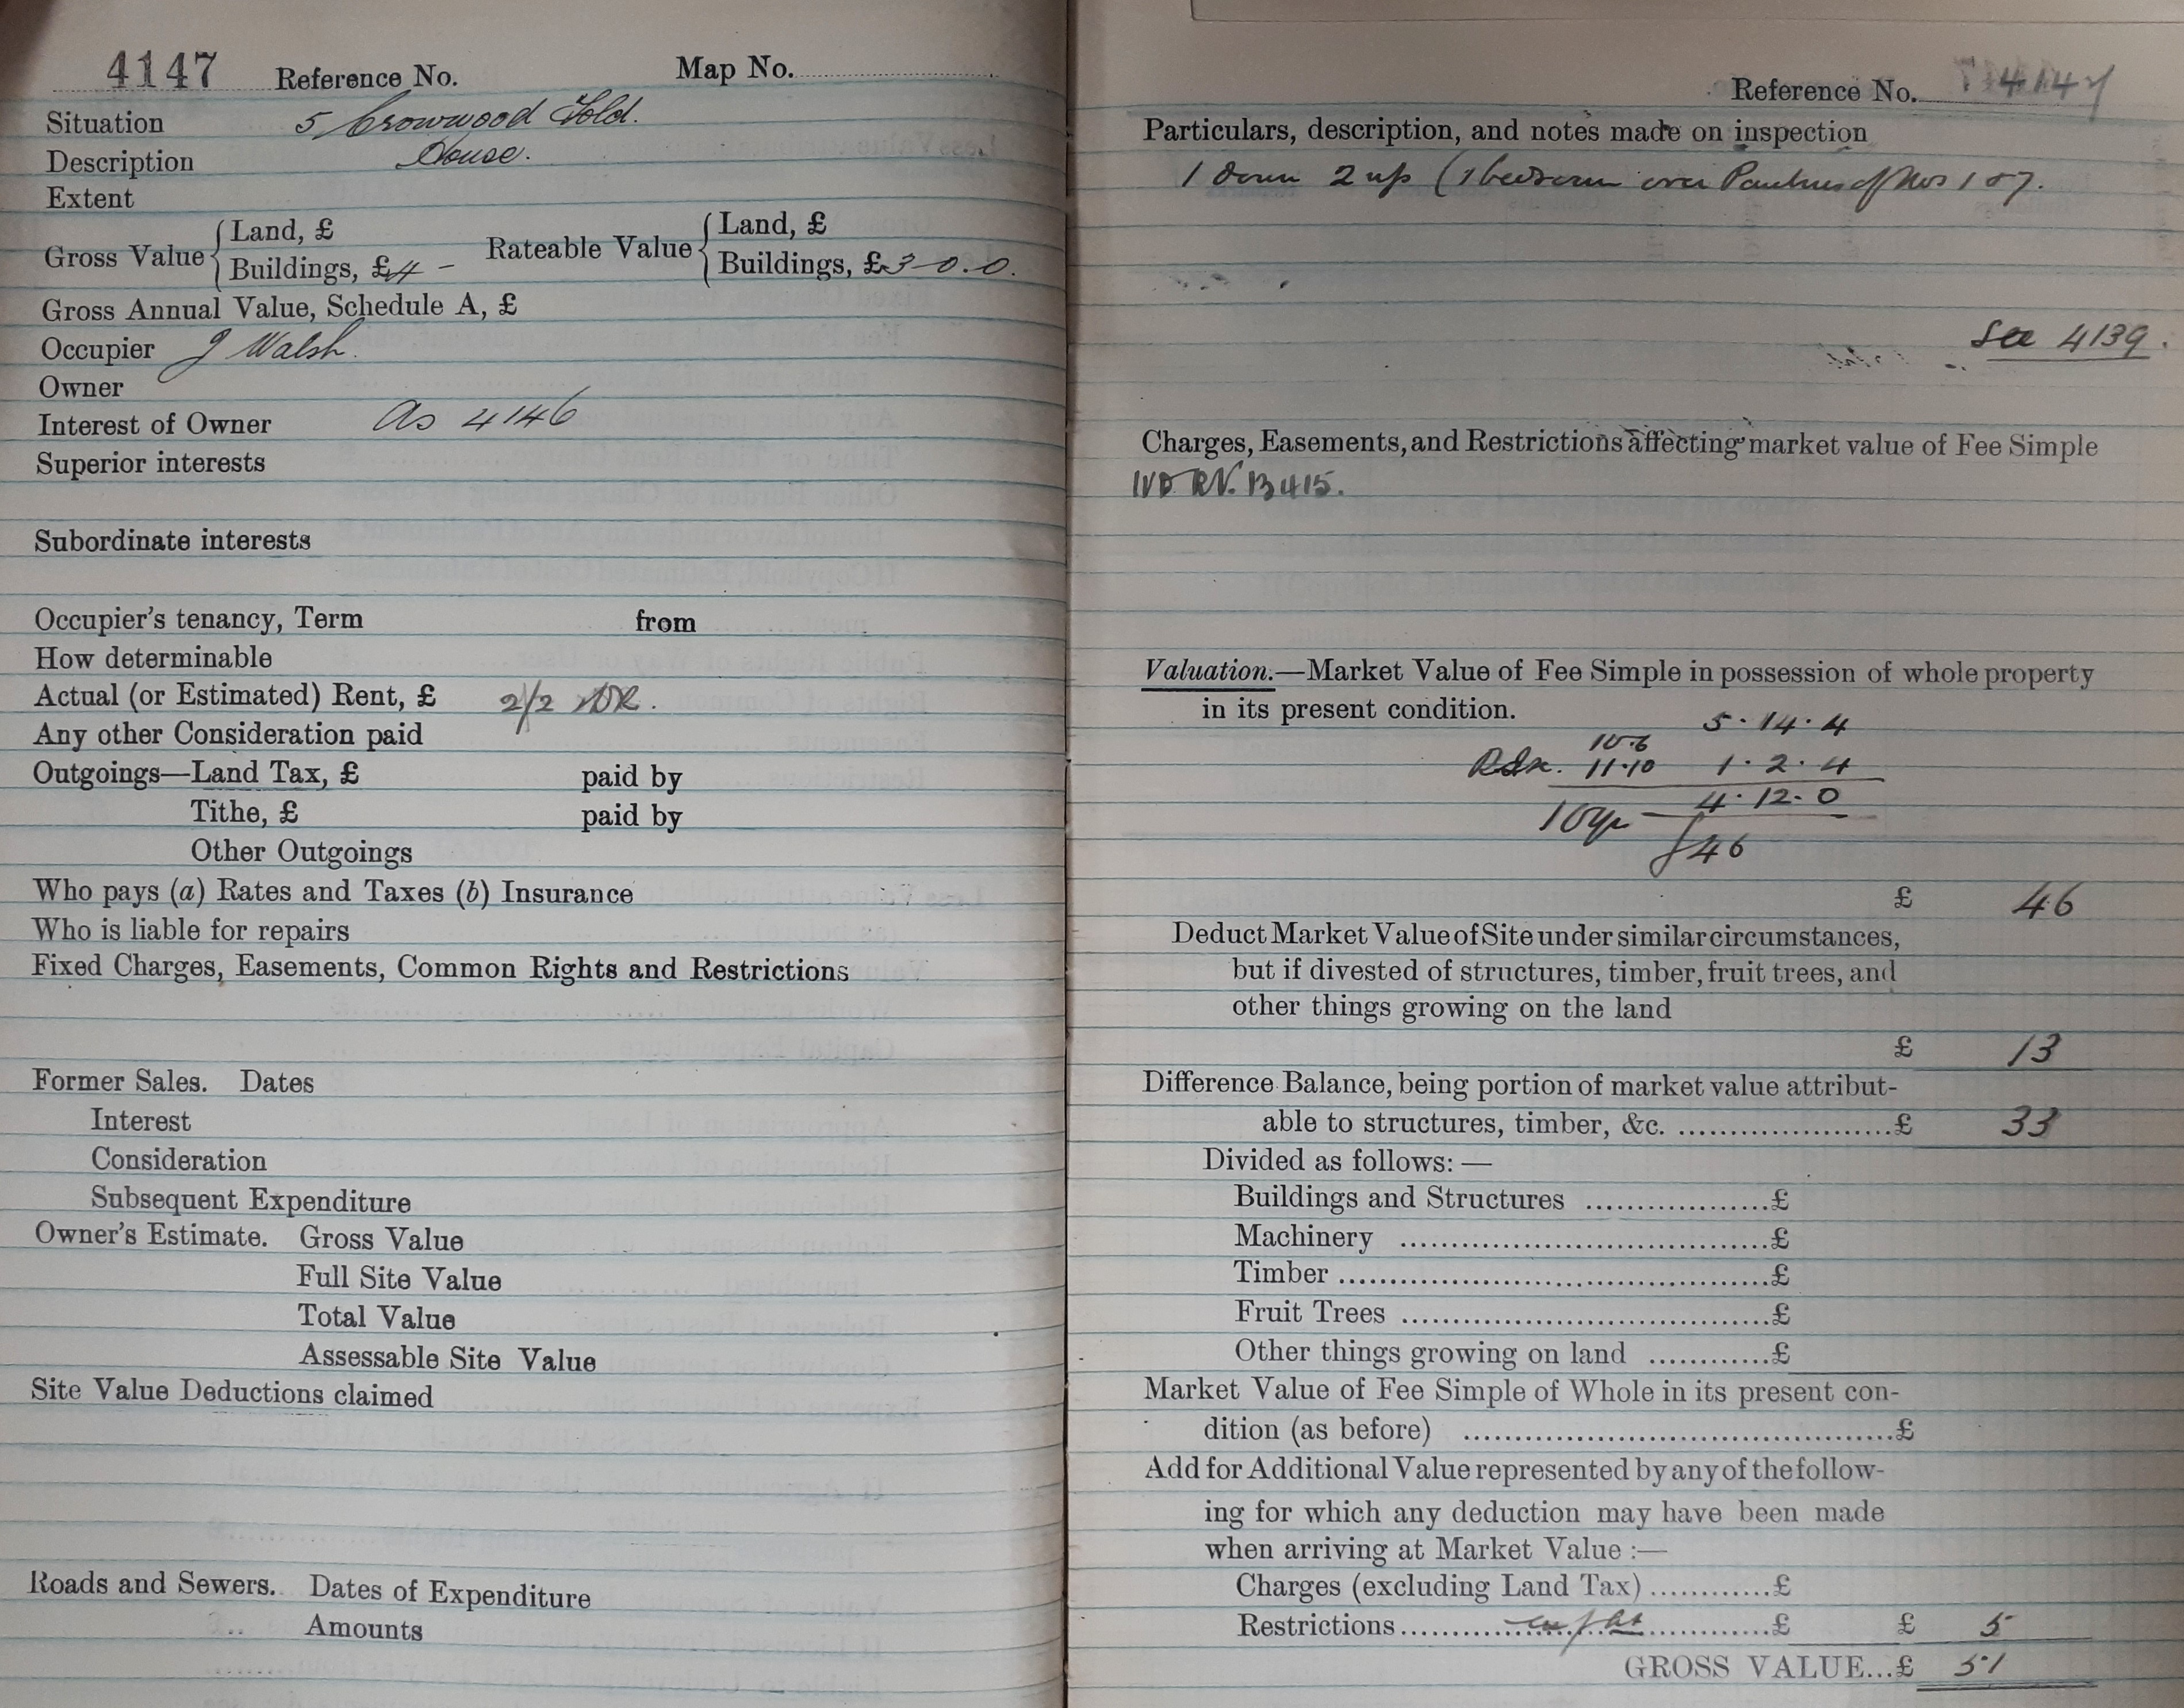 4147 Reference No. Map No.
Situation 5 Crowwood Fold.
Description House.
Extent
Gross Value { Land, £ Rateable Value { Land, £
Buildings, £4 – Buildings, £3-0.0.
Gross Annual Value, Schedule A, £
Occupier J Walsh.
Owner
Interest of Owner as 4146
Superior interests
Subordinate interests
Occupier's tenancy, Term from
How determinable
Actual (or Estimated) Rent, £ 2/2
Any other Consideration paid
Outgoings—Land Tax, £ paid by
Tithe, £ paid by
Other Outgoings
Who pays (a) Rates and Taxes (b) Insurance
Who is liable for repairs
Fixed Charges, Easements, Common Rights and Restrictions
Former Sales. Dates
Interest
Consideration
Subsequent Expenditure
Owner's Estimate. Gross Value
Full Site Value
Total Value
Assessable Site Value
Site Value Deductions claimed
Roads and Sewers. Dates of Expenditure
Amounts
Reference No. 4147
Particulars, description, and notes made on inspection
1 down 2 up (1 bedroom over Pantries of Nos 1 & 7.
See 4139.
Charges, Easements, and Restrictions affecting market value of Fee Simple
B 415.
Valuation.—Market Value of Fee Simple in possession of whole property
in its present condition.
5.14.4
10.6
11.10 1.2.4
4.12.0
10yp
£46
£ 46
Deduct Market Value of Site under similar circumstances,
but if divested of structures, timber, fruit trees, and
other things growing on the land
£ 13
Difference Balance, being portion of market value attribut-
able to structures, timber, &c. ......................£ 33
Divided as follows:—
Buildings and Structures ...................£
Machinery .....................................£
Timber ...........................................£
Fruit Trees .....................................£
Other things growing on land ............£
Market Value of Fee Simple of Whole in its present con-
dition (as before) ...........................................£
Add for Additional Value represented by any of the follow-
ing for which any deduction may have been made
when arriving at Market Value :—
Charges (excluding Land Tax) ............£
Restrictions ......................................£ £ 5
GROSS VALUE...£ 51